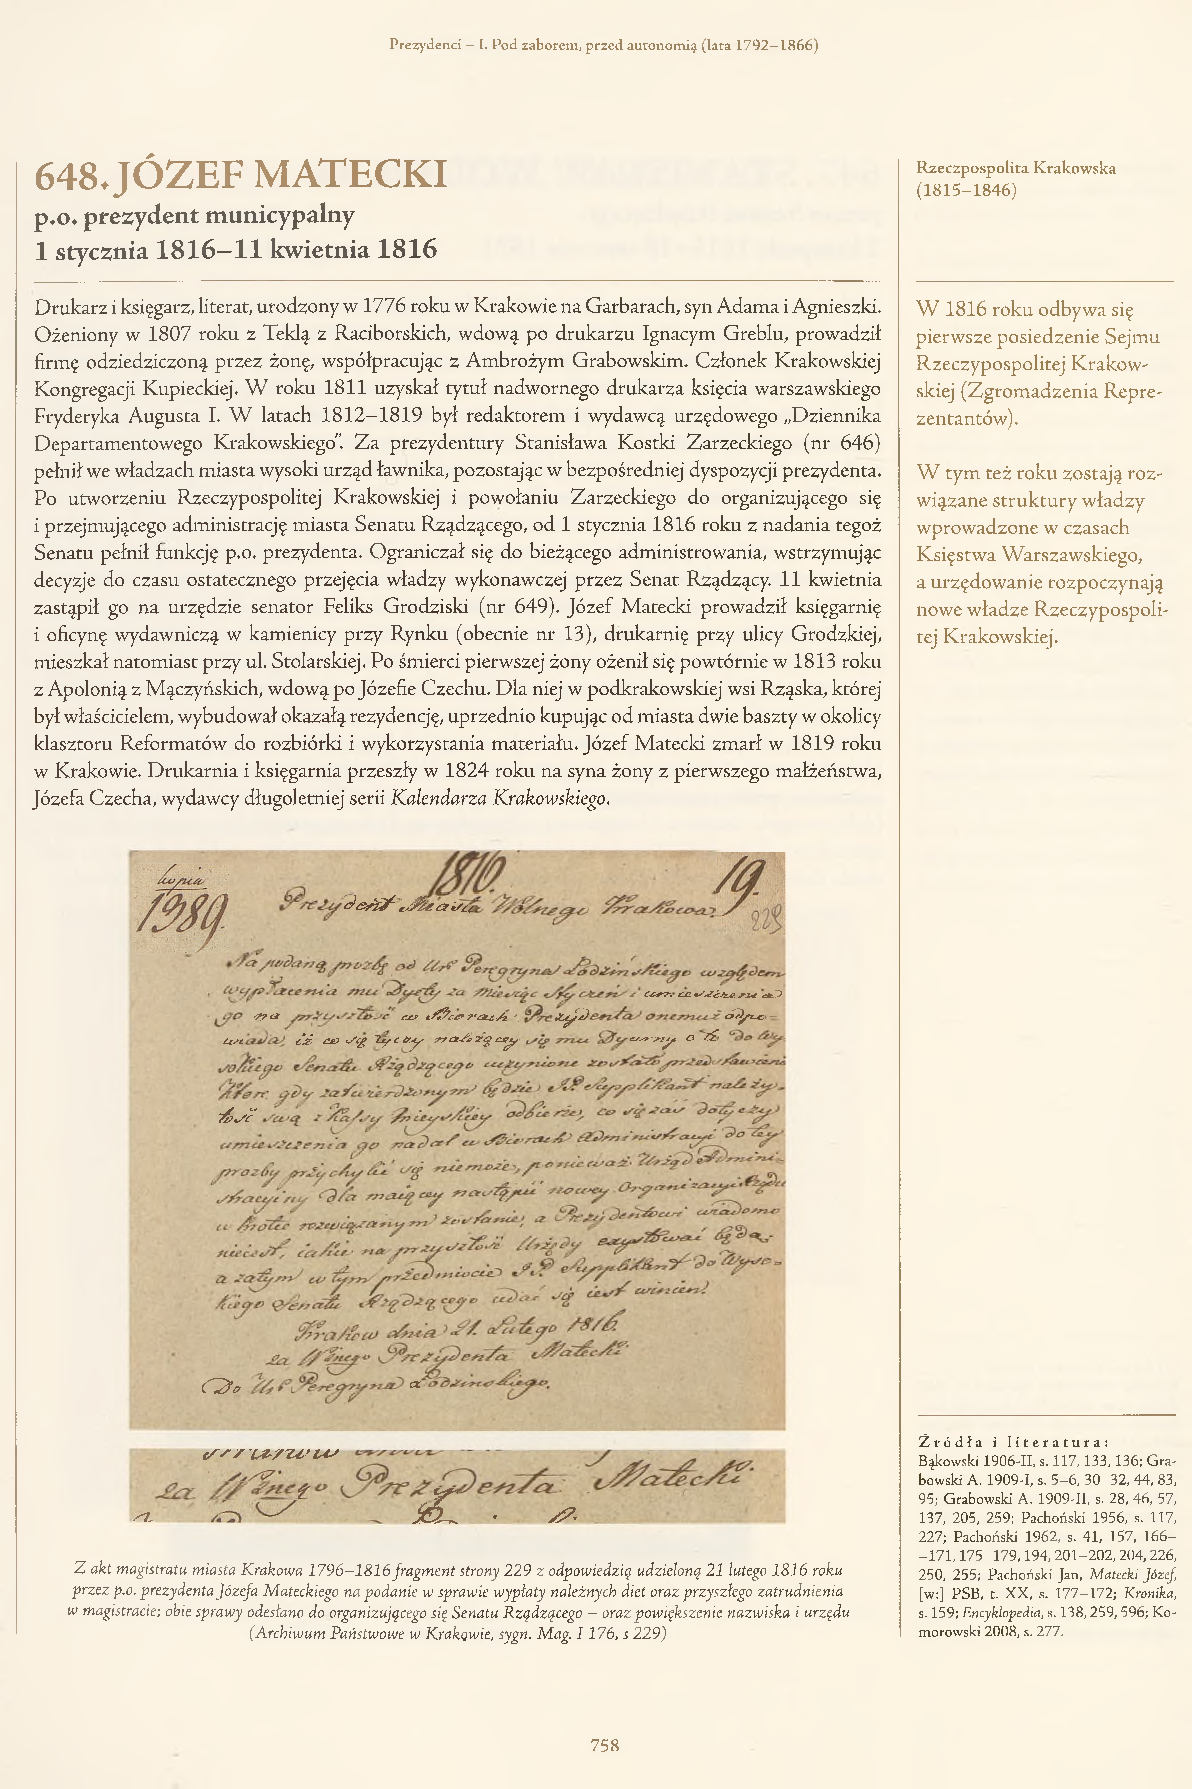 Prezydenci – I. Pod zaborem, przed autonomią (lata 1792–1866)
648. JÓZEF MATECKI
p.o. prezydent municypalny
1 stycznia 1816–11 kwietnia 1816
Drukarz i księgarz, literat, urodzony w 1776 roku w Krakowie na Garbarach, syn Adama i Agnieszki.
Ożeniony w 1807 roku z Teklą z Raciborskich, wdową po drukarzu Ignacym Greblu, prowadził
firmę odziedziczoną przez żonę, współpracując z Ambrożym Grabowskim. Członek Krakowskiej
Kongregacji Kupieckiej. W roku 1811 uzyskał tytuł nadwornego drukarza księcia warszawskiego
Fryderyka Augusta I. W latach 1812–1819 był redaktorem i wydawcą urzędowego „Dziennika
Departamentowego Krakowskiego". Za prezydentury Stanisława Kostki Zarzeckiego (nr 646)
pełnił we władzach miasta wysoki urząd ławnika, pozostając w bezpośredniej dyspozycji prezydenta.
Po utworzeniu Rzeczypospolitej Krakowskiej i powołaniu Zarzeckiego do organizującego się
i przejmującego administrację miasta Senatu Rządzącego, od 1 stycznia 1816 roku z nadania tegoż
Senatu pełnił funkcję p.o. prezydenta. Ograniczał się do bieżącego administrowania, wstrzymując
decyzje do czasu ostatecznego przejęcia władzy wykonawczej przez Senat Rządzący. 11 kwietnia
zastąpił go na urzędzie senator Feliks Grodziski (nr 649). Józef Matecki prowadził księgarnię
i oficynę wydawniczą w kamienicy przy Rynku (obecnie nr 13), drukarnię przy ulicy Grodzkiej,
mieszkał natomiast przy ul. Stolarskiej. Po śmierci pierwszej żony ożenił się powtórnie w 1813 roku
z Apolonią z Mączyńskich, wdową po Józefie Czechu. Dla niej w podkrakowskiej wsi Rząska, której
był właścicielem, wybudował okazałą rezydencję, uprzednio kupując od miasta dwie baszty w okolicy
klasztoru Reformatów do rozbiórki i wykorzystania materiału. Józef Matecki zmarł w 1819 roku
w Krakowie. Drukarnia i księgarnia przeszły w 1824 roku na syna żony z pierwszego małżeństwa,
Józefa Czecha, wydawcy długoletniej serii Kalendarza Krakowskiego.
kopia 1816. 19.
1989. Prezydent Miasta Wolnego Krakowa. 229
Na podaną prozbę od Ur. Peregryna Łodzińskiego względem
wypłacenia mu Dyety za Miesiąc Styczeń i umieszczenia
go na przyszłość w Biorach Prezydenta onemuż odpo=
wiada, iż co się tyczy należącey się mu Dyurny o to do Wy
sokiego Senatu Rządzącego uczynione zostało przedstawienie
Które gdy zatwierdzonym będzie J.P. Supplikant należy=
tość swą z Kassy Mieyskiey odbierze, co się zaś dotyczy
umieszczenia go nadal w Biorach Administracyi do tey
prozby przychylić się niemoże, ponieważ Urząd Admini=
stracyiny dla maiącey nastąpić nowey Organizacyi Rządu
w krotce rozwiązanym zostanie, a Prezydentowi wiadomo
nieiest, iakie na przyszłość Urzędy exystować będą,
a zatym w tym przedmiocie J.P. Supplikant do Wyso=
kiego Senatu Rządzącego udać się iest winien.
Krakow dnia 21. Lutego 1816.
za W°znego Prezydenta Matecki
Do Ur. Peregryna Łodzinskiego.
za W°znego Prezydenta Matecki
Z akt magistratu miasta Krakowa 1796–1816 fragment strony 229 z odpowiedzią udzieloną 21 lutego 1816 roku
przez p.o. prezydenta Józefa Mateckiego na podanie w sprawie wypłaty należnych diet oraz przyszłego zatrudnienia
w magistracie; obie sprawy odesłano do organizującego się Senatu Rządzącego – oraz powiększenie nazwiska i urzędu
(Archiwum Państwowe w Krakowie, sygn. Mag. I 176, s 229)
Rzeczpospolita Krakowska
(1815–1846)
W 1816 roku odbywa się
pierwsze posiedzenie Sejmu
Rzeczypospolitej Krakow-
skiej (Zgromadzenia Repre-
zentantów).
W tym też roku zostają roz-
wiązane struktury władzy
wprowadzone w czasach
Księstwa Warszawskiego,
a urzędowanie rozpoczynają
nowe władze Rzeczypospoli-
tej Krakowskiej.
Źródła i literatura:
Bąkowski 1906-II, s. 117, 133, 136; Gra-
bowski A. 1909-I, s. 5–6, 30 32, 44, 83,
95; Grabowski A. 1909-II, s. 28, 46, 57,
137, 205, 259; Pachoński 1956, s. 117,
227; Pachoński 1962, s. 41, 157, 166–
–171, 175 179, 194, 201–202, 204, 226,
250, 255; Pachoński Jan, Matecki Józef,
[w:] PSB, t. XX, s. 177–172; Kronika,
s. 159; Encyklopedia, s. 138, 259, 596; Ko-
morowski 2008, s. 277.
758